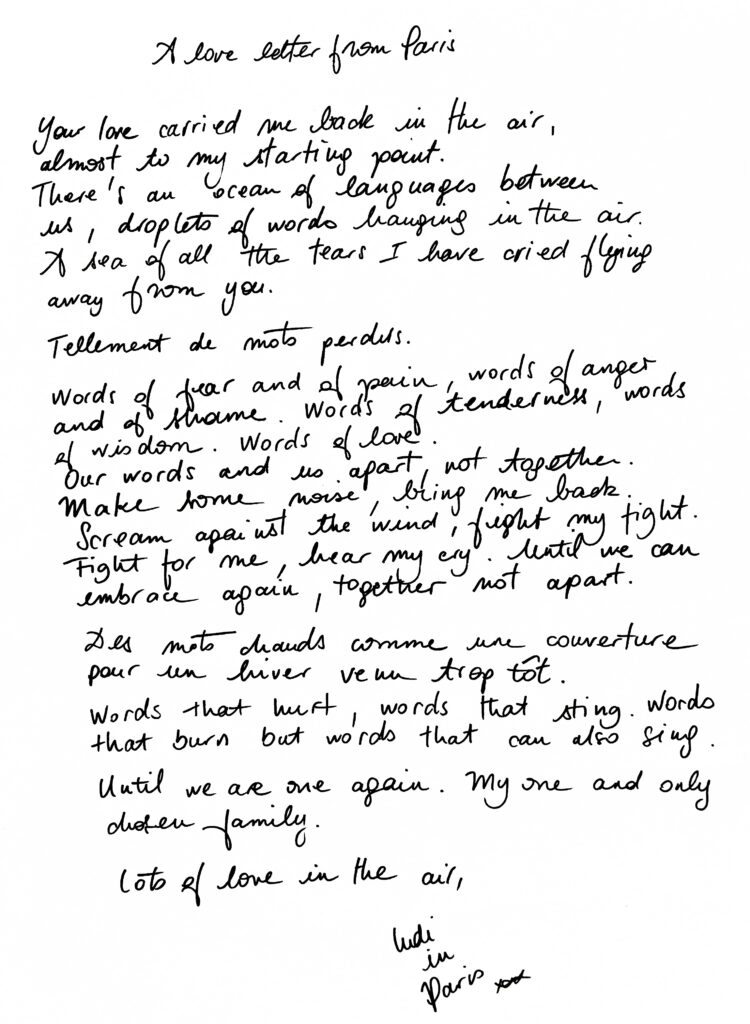 A love letter from Paris
Your love carried me back in the air,
almost to my starting point.
There's an ocean of languages between
us, droplets of words hanging in the air.
A sea of all the tears I have cried flying
away from you.
Tellement de mots perdus.
Words of fear and of pain, words of anger
and of shame. Words of tenderness, words
of wisdom. Words of love.
Our words and us apart, not together.
Make some noise, bring me back.
Scream against the wind, fight my fight.
Fight for me, hear my cry. Until we can
embrace again, together not apart.
Des mots chauds comme une couverture
pour un hiver venu trop tôt.
Words that hurt, words that sting. Words
that burn but words that can also sing.
Until we are one again. My one and only
chosen family.
Lots of love in the air,
Ludi
in
Paris xxx